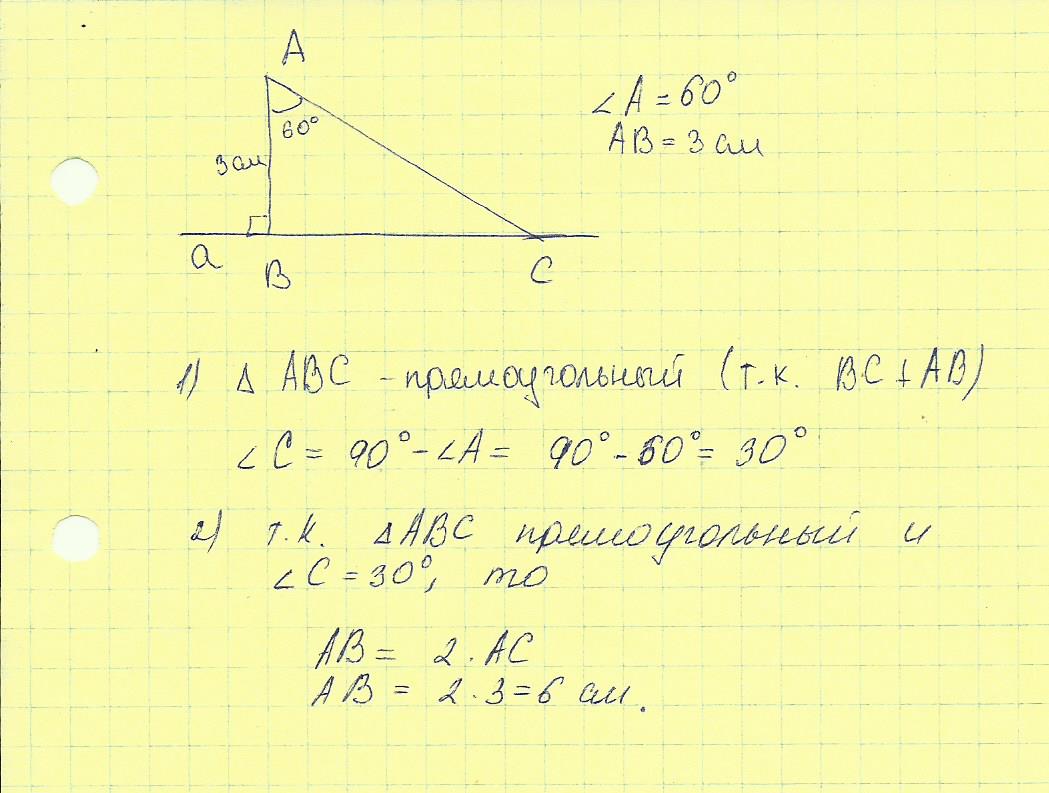 A
60°
3 см
a
B
C
∠A = 60°
AB = 3 см
1) Δ ABC - прямоугольный (т.к. BC ⊥ AB)
∠C = 90° - ∠A = 90° - 60° = 30°
2) т.к. ΔABC прямоугольный и
∠C = 30°, то
AB = 2 · AC
AB = 2 · 3 = 6 см.